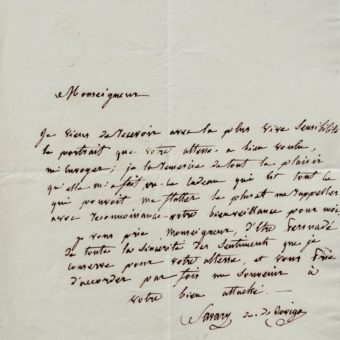 Monseigneur
Je viens de recevoir avec la plus vive sensibilité
le portrait que votre altesse a bien voulu
m'envoyer; je la remercie de tout le plaisir
qu'elle m'a fait ce cadeau qui est tout ce
qui pouvoit me flatter le plus et me rappeller
avec reconnoissance votre bienveillance pour moi,
je vous prie, Monseigneur, d'être persuadé
de toute la sincérité des sentimens que je
conserve pour votre altesse, et vous prie
d'accorder par fois un souvenir à
votre bien attaché
Savary d. de Rovigo